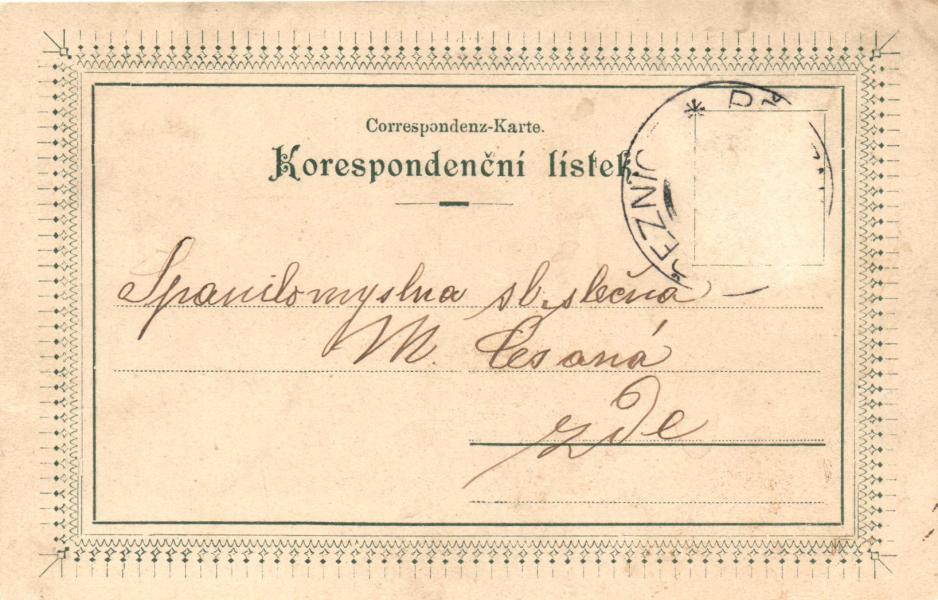 Correspondenz-Karte.
Korespondenční lístek.
Spanilomyslna sl. slečna
M. Česaná
zde